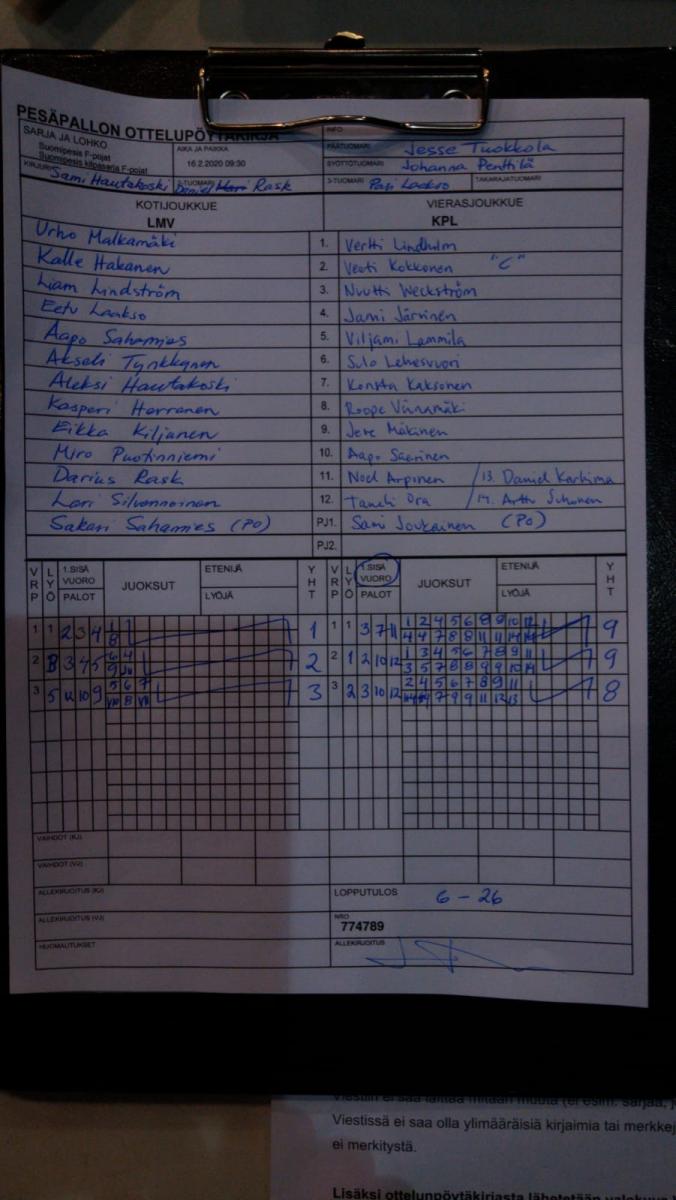 PESÄPALLON OTTELUPÖYTÄKIRJA
SARJA JA LOHKO
Suomipesis F-pojat
Suomipesis kilpasarja F-pojat
AIKA JA PAIKKA
16.2.2020 09:30
INFO
PÄÄTUOMARI Jesse Tuokkola
SYÖTTÖTUOMARI Johanna Penttilä
KIRJURI Sami Hautakoski 2-TUOMARI Daniel Rask 3-TUOMARI Pasi Laakso TAKARAJATUOMARI
KOTIJOUKKUE VIERASJOUKKUE
LMV KPL
Urho Malkamäki 1. Vertti Lindholm
Kalle Hakanen 2. Veeti Kokkonen "C"
Liam Lindström 3. Nuutti Weckström
Eetu Laakso 4. Jami Järvinen
Aapo Sahamies 5. Viljami Lammila
Akseli Tynkkynen 6. Sulo Lehesvuori
Aleksi Hautakoski 7. Konsta Kaksonen
Kasperi Herranen 8. Roope Väinämäki
Eikka Kiljanen 9. Jere Mäkinen
Miro Puotinniemi 10. Aapo Saarinen
Darius Rask 11. Noel Arponen / 13. Daniel Karhima
Lari Silvennoinen 12. Taneli Ora / 14. Arttu
Sakari Sahamies (PO) PJ1. Sami Joukainen (PO)
PJ2.
VRP LYÖ 1.SISÄ VUORO PALOT JUOKSUT ETENIJÄ LYÖJÄ YHT VRP LYÖ 1.SISÄ VUORO PALOT JUOKSUT ETENIJÄ LYÖJÄ YHT
1 1 2 3 4 1 1 1 1 3 7 11 1 2 4 5 6 8 9 10 12 9
8 4 4 7 8 8 11 11 14 14
2 8 3 4 5 6 4 2 2 1 2 10 12 1 3 4 5 6 7 8 9 11 9
9 3 5 7 8 8 9 9 10 14
3 5 10 9 5 6 7 3 3 2 3 10 12 2 4 5 6 7 8 9 11 8
VII 8 VII 7 9 9 11 12 13
VAIHDOT (KJ)
VAIHDOT (VJ)
ALLEKIRJOITUS (KJ) LOPPUTULOS 6 - 26
ALLEKIRJOITUS (VJ) NRO
774789
HUOMAUTUKSET ALLEKIRJOITUS
Viestiin ei saa laittaa mitään muuta (ei esim. sarjaa, j
Viestissä ei saa olla ylimääräisiä kirjaimia tai merkkej
ei merkitystä.
Lisäksi ottelupöytäkirjasta lähetetään valokuva